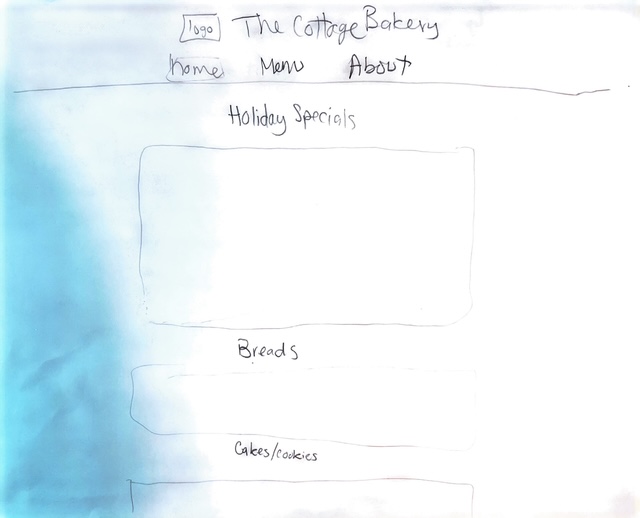 logo The Cottage Bakery
Home Menu About
Holiday Specials
Breads
Cakes/cookies